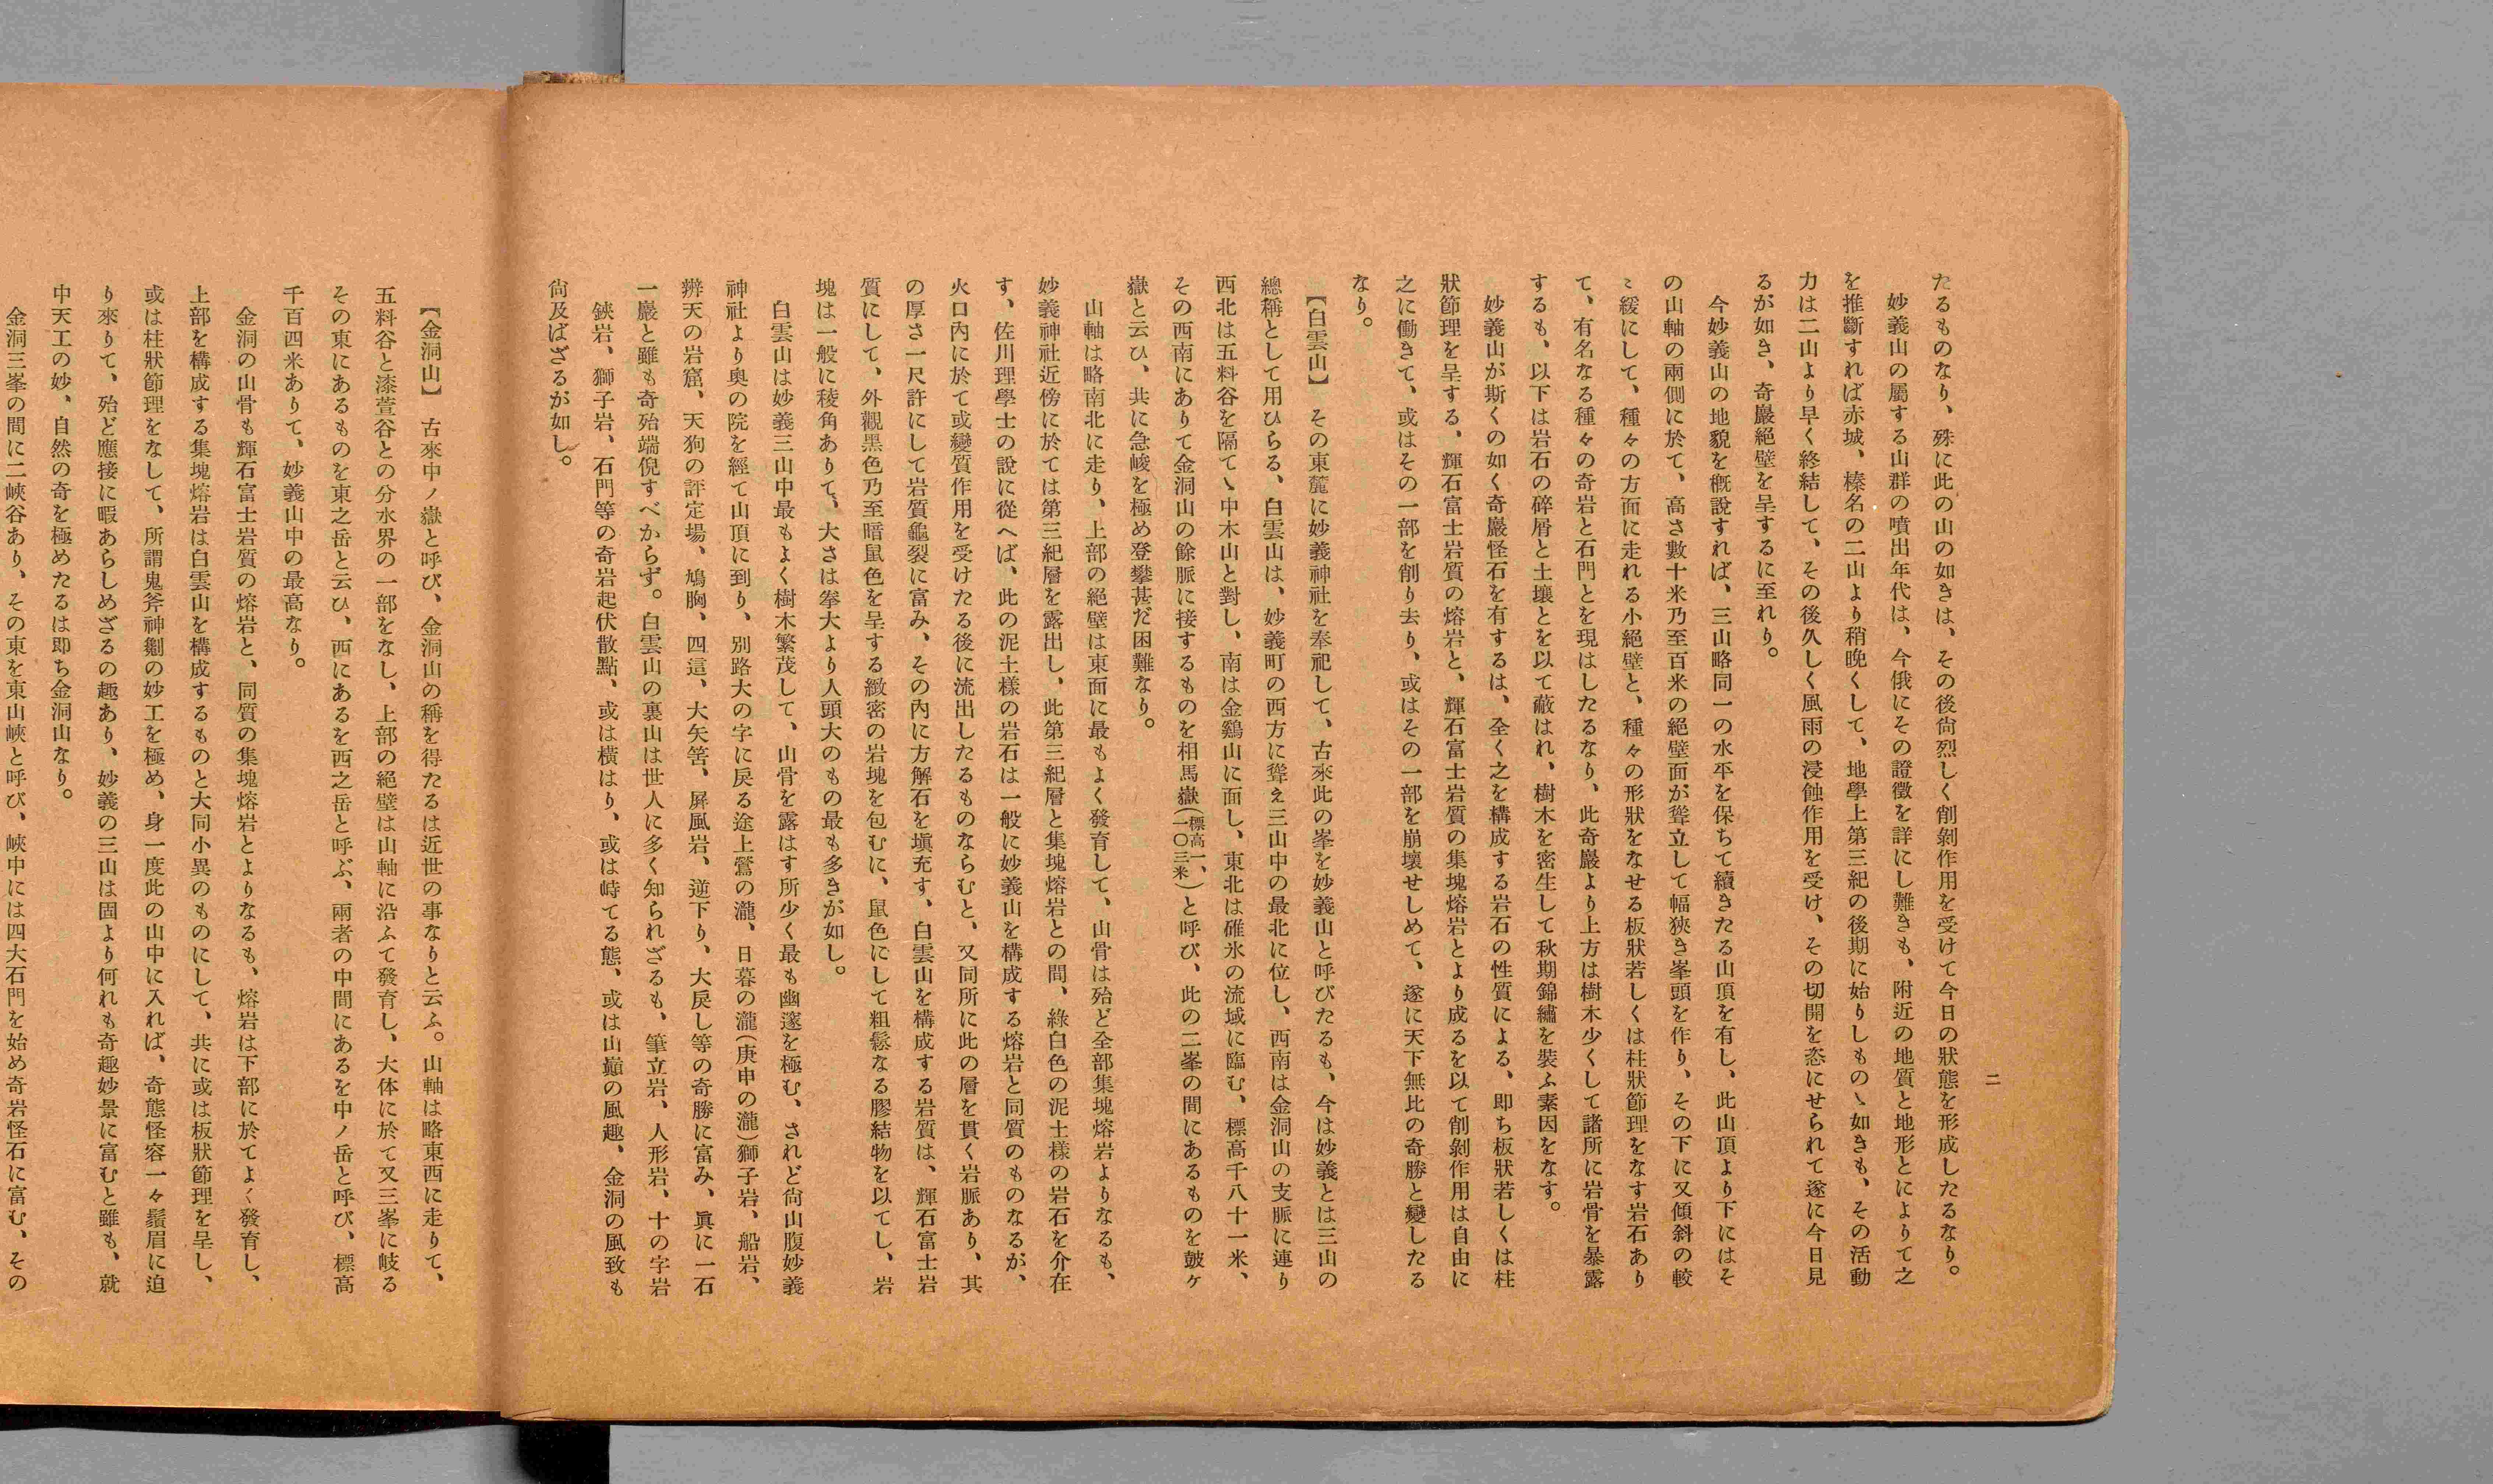 二
たるものなり、殊に此の山の如きは、その後尙烈しく削剝作用を受けて今日の狀態を形成したるなり。
妙義山の屬する山群の噴出年代は、今俄にその證徵を詳にし難きも、附近の地質と地形とによりて之
を推斷すれば赤城、榛名の二山より稍晩くして、地學上第三紀の後期に始りしものゝ如きも、その活動
力は二山より早く終結して、その後久しく風雨の浸蝕作用を受け、その切開を恣にせられて遂に今日見
るが如き、奇巖絕壁を呈するに至れり。
今妙義山の地貌を槪說すれば、三山略同一の水平を保ちて續きたる山頂を有し、此山頂より下にはそ
の山軸の兩側に於て、高さ數十米乃至百米の絕壁面が聳立して幅狹き峯頭を作り、その下に又傾斜の較
〻緩にして、種々の方面に走れる小絕壁と、種々の形狀をなせる板狀若しくは柱狀節理をなす岩石あり
て、有名なる種々の奇岩と石門とを現はしたるなり、此奇巖より上方は樹木少くして諸所に岩骨を暴露
するも、以下は岩石の碎屑と土壤とを以て蔽はれ、樹木を密生して秋期錦繡を裝ふ素因をなす。
妙義山が斯くの如く奇巖怪石を有するは、全く之を構成する岩石の性質による、卽ち板狀若しくは柱
狀節理を呈する、輝石富士岩質の熔岩と、輝石富士岩質の集塊熔岩とより成るを以て削剝作用は自由に
之に働きて、或はその一部を削り去り、或はその一部を崩壞せしめて、遂に天下無比の奇勝と變したる
なり。
【白雲山】 その東麓に妙義神社を奉祀して、古來此の峯を妙義山と呼びたるも、今は妙義とは三山の
總稱として用ひらる、白雲山は、妙義町の西方に聳え三山中の最北に位し、西南は金洞山の支脈に連り
西北は五料谷を隔てゝ中木山と對し、南は金鷄山に面し、東北は碓氷の流域に臨む、標高千八十一米、
その西南にありて金洞山の餘脈に接するものを相馬嶽(標高一、一〇三米)と呼び、此の二峯の間にあるものを皷ヶ
嶽と云ひ、共に急峻を極め登攀甚だ困難なり。
山軸は略南北に走り、上部の絕壁は東面に最もよく發育して、山骨は殆ど全部集塊熔岩よりなるも、
妙義神社近傍に於ては第三紀層を露出し、此第三紀層と集塊熔岩との間、綠白色の泥土樣の岩石を介在
す、佐川理學士の說に從へば、此の泥土樣の岩石は一般に妙義山を構成する熔岩と同質のものなるが、
火口內に於て或變質作用を受けたる後に流出したるものならむと、又同所に此の層を貫く岩脈あり、其
の厚さ一尺許にして岩質龜裂に富み、その內に方解石を塡充す、白雲山を構成する岩質は、輝石富士岩
質にして、外觀黑色乃至暗鼠色を呈する緻密の岩塊を包むに、鼠色にして粗鬆なる膠結物を以てし、岩
塊は一般に稜角ありて、大さは拳大より人頭大のもの最も多きが如し。
白雲山は妙義三山中最もよく樹木繁茂して、山骨を露はす所少く最も幽邃を極む、されど尙山腹妙義
神社より奧の院を經て山頂に到り、別路大の字に戾る途上鶯の瀧、日暮の瀧(庚申の瀧)獅子岩、船岩、
辨天の岩窟、天狗の評定場、鳩胸、四這、大矢筈、屛風岩、逆下り、大戾し等の奇勝に富み、眞に一石
一巖と雖も奇殆端倪すべからず。白雲山の裏山は世人に多く知られざるも、筆立岩、人形岩、十の字岩
鋏岩、獅子岩、石門等の奇岩起伏散點、或は橫はり、或は峙てる態、或は山巓の風趣、金洞の風致も
尙及ばざるが如し。
【金洞山】 古來中ノ嶽と呼び、金洞山の稱を得たるは近世の事なりと云ふ。山軸は略東西に走りて、
五料谷と漆萱谷との分水界の一部をなし、上部の絕壁は山軸に沿ふて發育し、大体に於て又三峯に岐る
その東にあるものを東之岳と云ひ、西にあるを西之岳と呼ぶ、兩者の中間にあるを中ノ岳と呼び、標高
千百四米ありて、妙義山中の最高なり。
金洞の山骨も輝石富士岩質の熔岩と、同質の集塊熔岩とよりなるも、熔岩は下部に於てよく發育し、
上部を構成する集塊熔岩は白雲山を構成するものと大同小異のものにして、共に或は板狀節理を呈し、
或は柱狀節理をなして、所謂鬼斧神劖の妙工を極め、身一度此の山中に入れば、奇態怪容一々鬚眉に迫
り來りて、殆ど應接に暇あらしめざるの趣あり、妙義の三山は固より何れも奇趣妙景に富むと雖も、就
中天工の妙、自然の奇を極めたるは卽ち金洞山なり。
金洞三峯の間に二峽谷あり、その東を東山峽と呼び、峽中には四大石門を始め奇岩怪石に富む、その